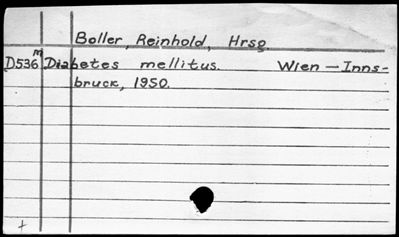 Boller, Reinhold, Hrsg.
D536m Diabetes mellitus. Wien — Inns-
bruck, 1950.